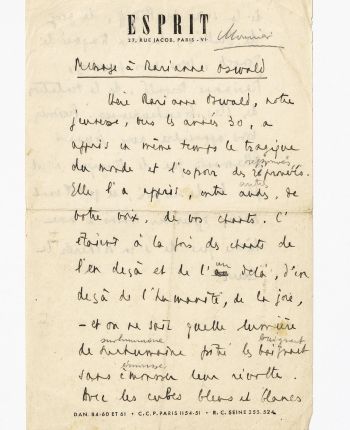 ESPRIT
27, RUE JACOB, PARIS-VIe
Mounier
Message à Marianne Oswald
Chère Marianne Oswald, notre
jeunesse, vers les années 30, a
appris en même temps le tragique
du monde et l'espoir des réprouvés.
réprouvés
Elle l'a appris, entre autres, de
autres
votre voix, de vos chants. C'
étaient à la fois des chants de
l'en deçà et de l'au delà, d'en
un
deçà de l'humanité, de la joie,
- et on ne sait quelle lumière
surhumaine baignait
de surhumaine les baignait
sans émousser leur révolte.
émousser
Avec les aubes bleues et blanches
DAN. 84-60 ET 61 • C.C.P. PARIS 1154-51 • R.C. SEINE 355.524